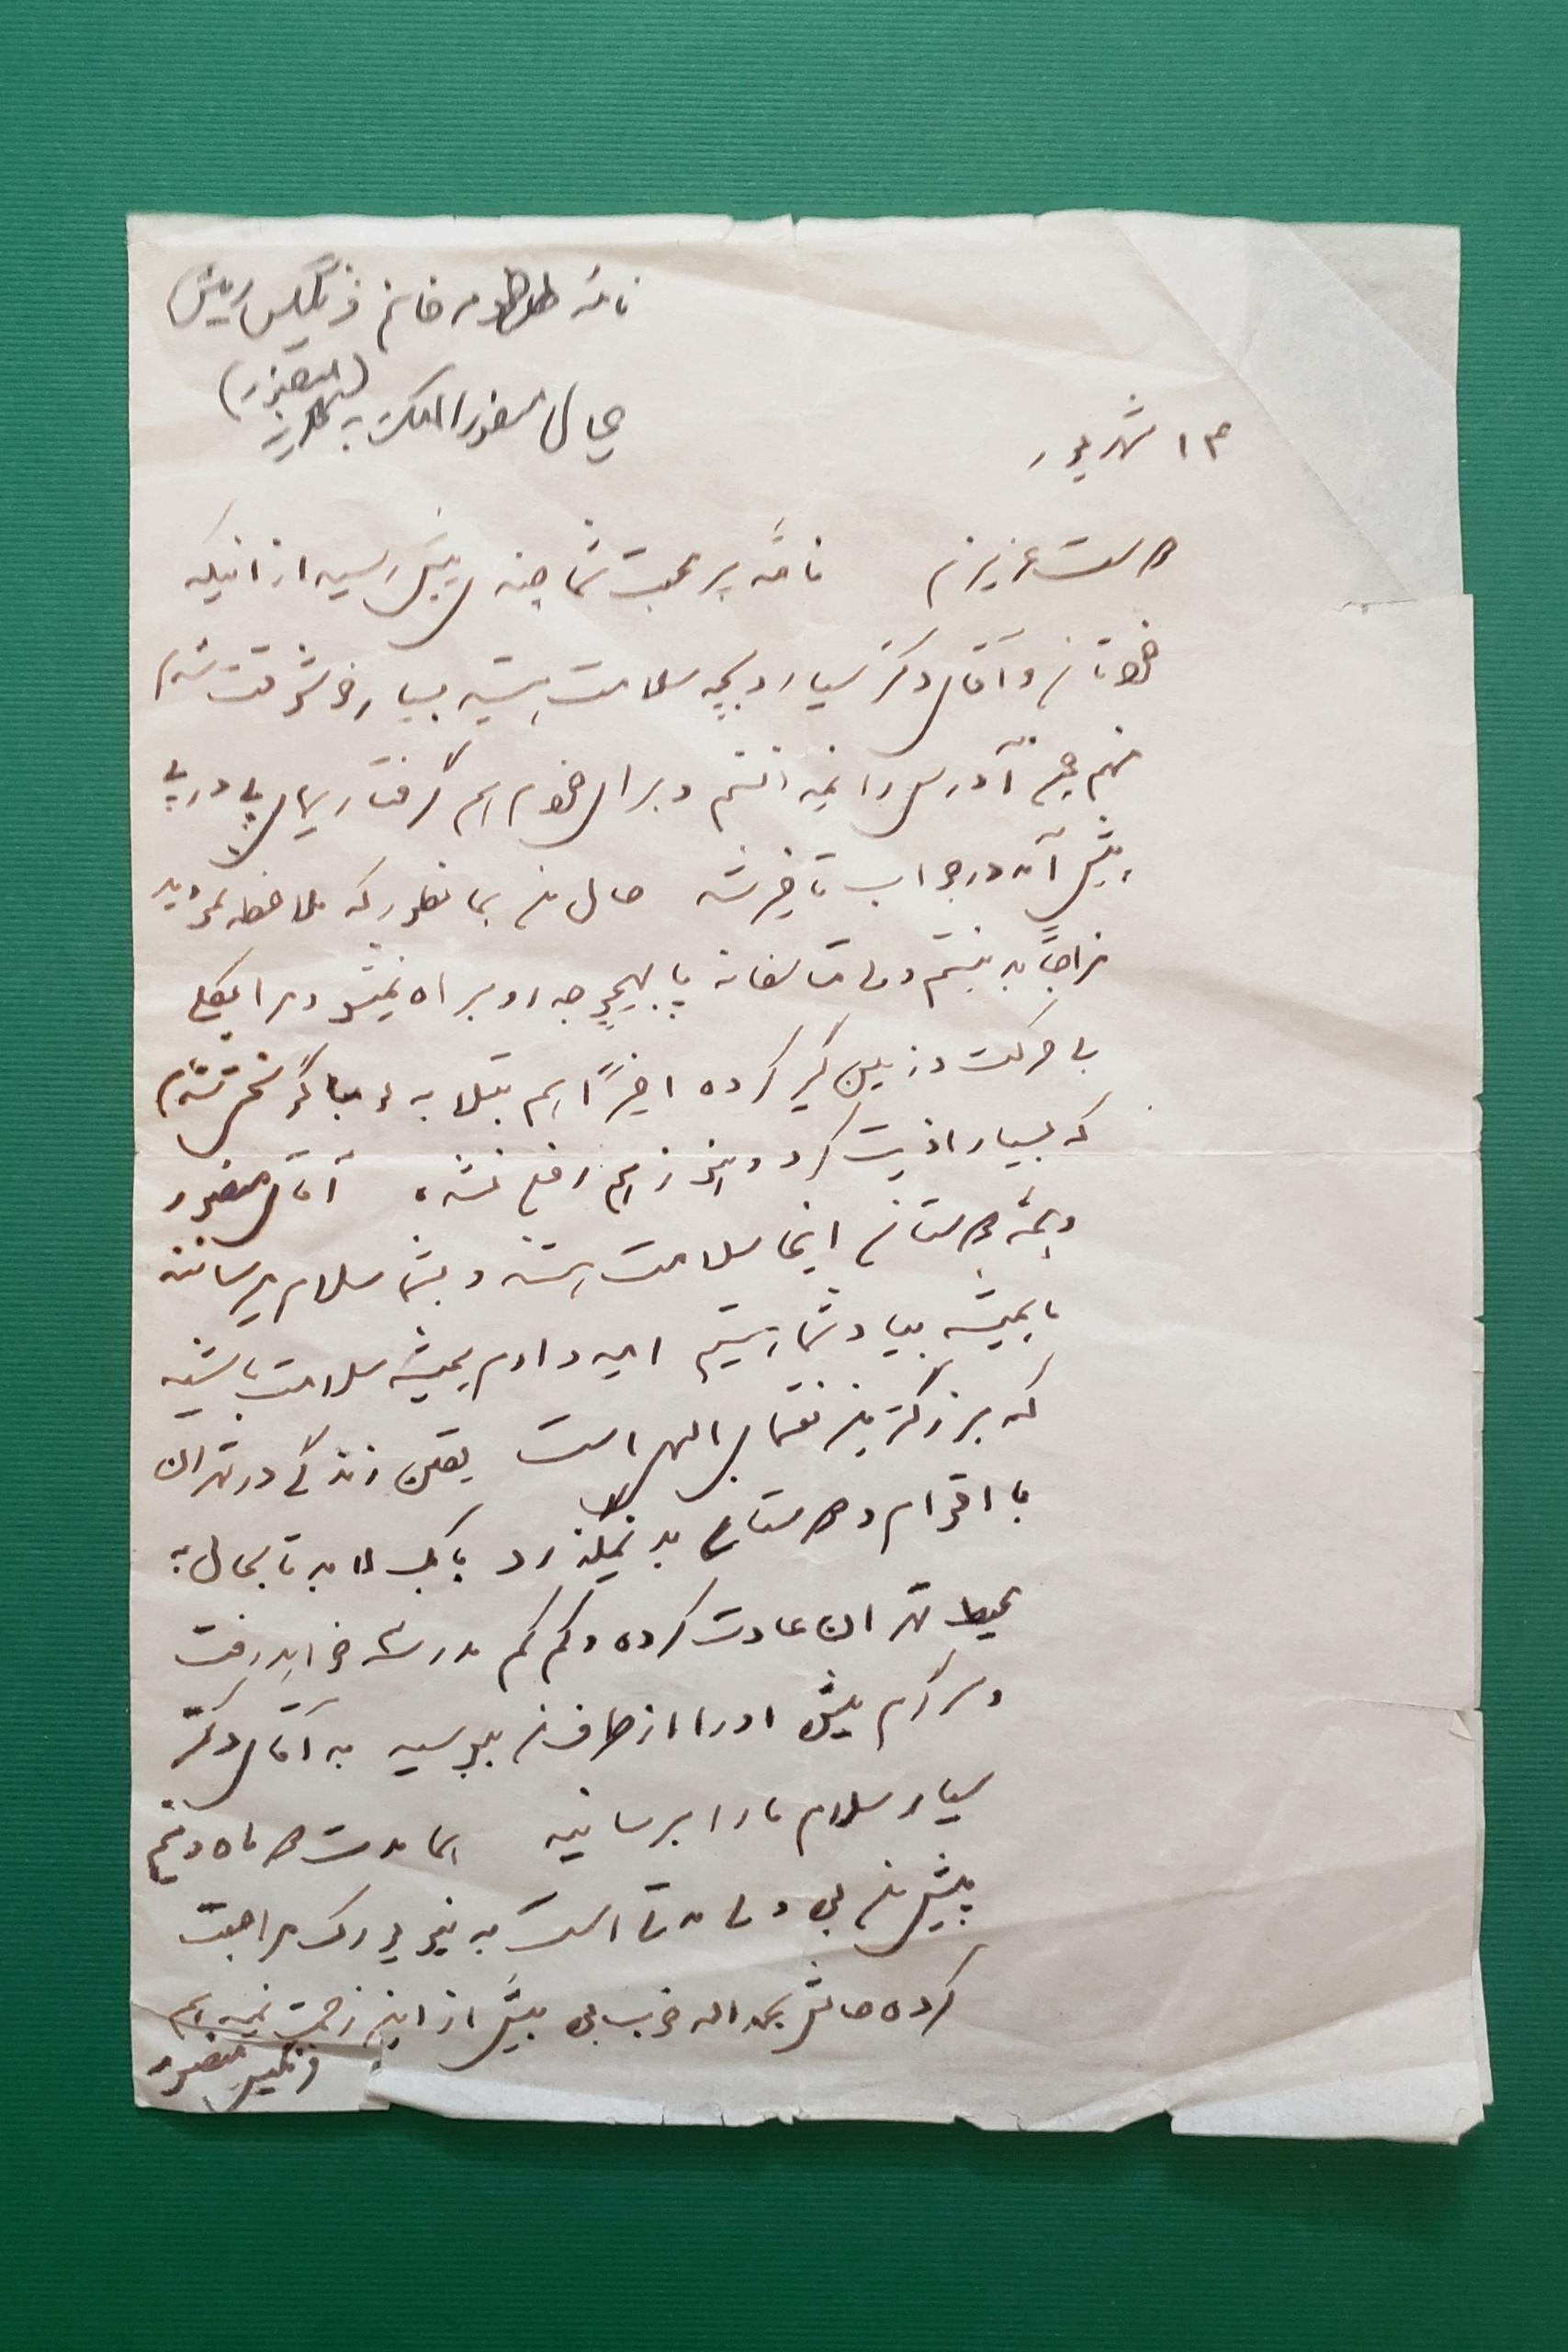 نامهٔ خانم فرنگیس
عیال منصورالملک به
(منصور)
۱۳ شهریور
دوست عزیزم نامه پر محبت شما چند پیش رسید از اینکه
خودتان و آقای دکتر سیار و بچه سلامت هستید بسیار خوشوقت شدم
منهم چون آدرس را نمیدانستم و برای خودم هم گرفتاریهای پی در پی
پیش آمد در جواب تاخیر شد حال من همانطور که ملاحظه نمودید
مزاجاً بد نیستم ولی متاسفانه پا بهیچوجه رو براه نمیشود مرا بکلی
بی حرکت و زمین گیر کرده اخیراً هم مبتلا به لومباگو سختی شدم
که بسیار اذیت کرد و هنوز هم رفع نشده آقای منصور
و همه دوستان اینجا سلامت هستند و بشما سلام میرسانند
ما همیشه بیاد شما هستیم امیدوارم همیشه سلامت باشید
که بزرگترین نعمتهای الهی است یقین زندگی در تهران
با اقوام و دوستان بد نمیگذرد بابک لابد تا بحال به
محیط تهران عادت کرده و کم کم مدرسه خواهد رفت
و سرگرم میشود او را از طرف من ببوسید به آقای دکتر
سیار سلام ما را برسانید هما مدت دو ماه و نیم
پیش من بود ولی مدتی است به نیویورک مراجعت
کرده حالش بحمداله خوب بود بیش از این زحمت نمیدهم
فرنگیس منصور